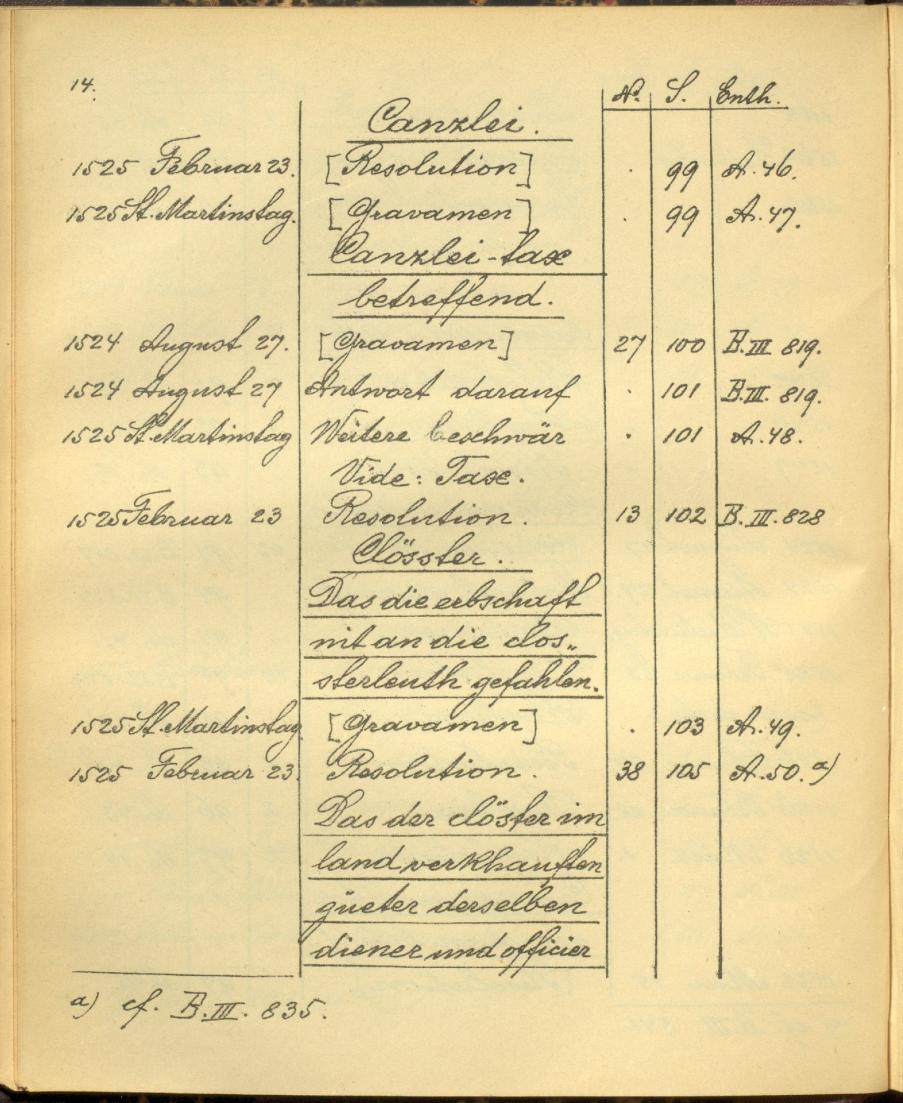 14.
No. S. Enth.
Canzlei.
1525 Februar 23. [Resolution] . 99 A. 46.
1525 St. Martinstag. [Gravamen] . 99 A. 47.
Canzlei-tax
betreffend.
1524 August 27. [Gravamen] 27 100 B. III. 819.
1524 August 27 Antwort darauf . 101 B. III. 819.
1525 St. Martinstag Weitere beschwär . 101 A. 48.
Vide: Taxe.
1525 Februar 23 Resolution. 13 102 B. III. 828
Clösster.
Das die erbschaft
nit an die clos„
sterleuth gefahlen.
1525 St. Martinstag [Gravamen] . 103 A. 49.
1525 Februar 23. Resolution. 38 105 A. 50. a)
Das der clöster im
land verkhauften
güeter derselben
diener und officier
a) cf. B. III. 835.